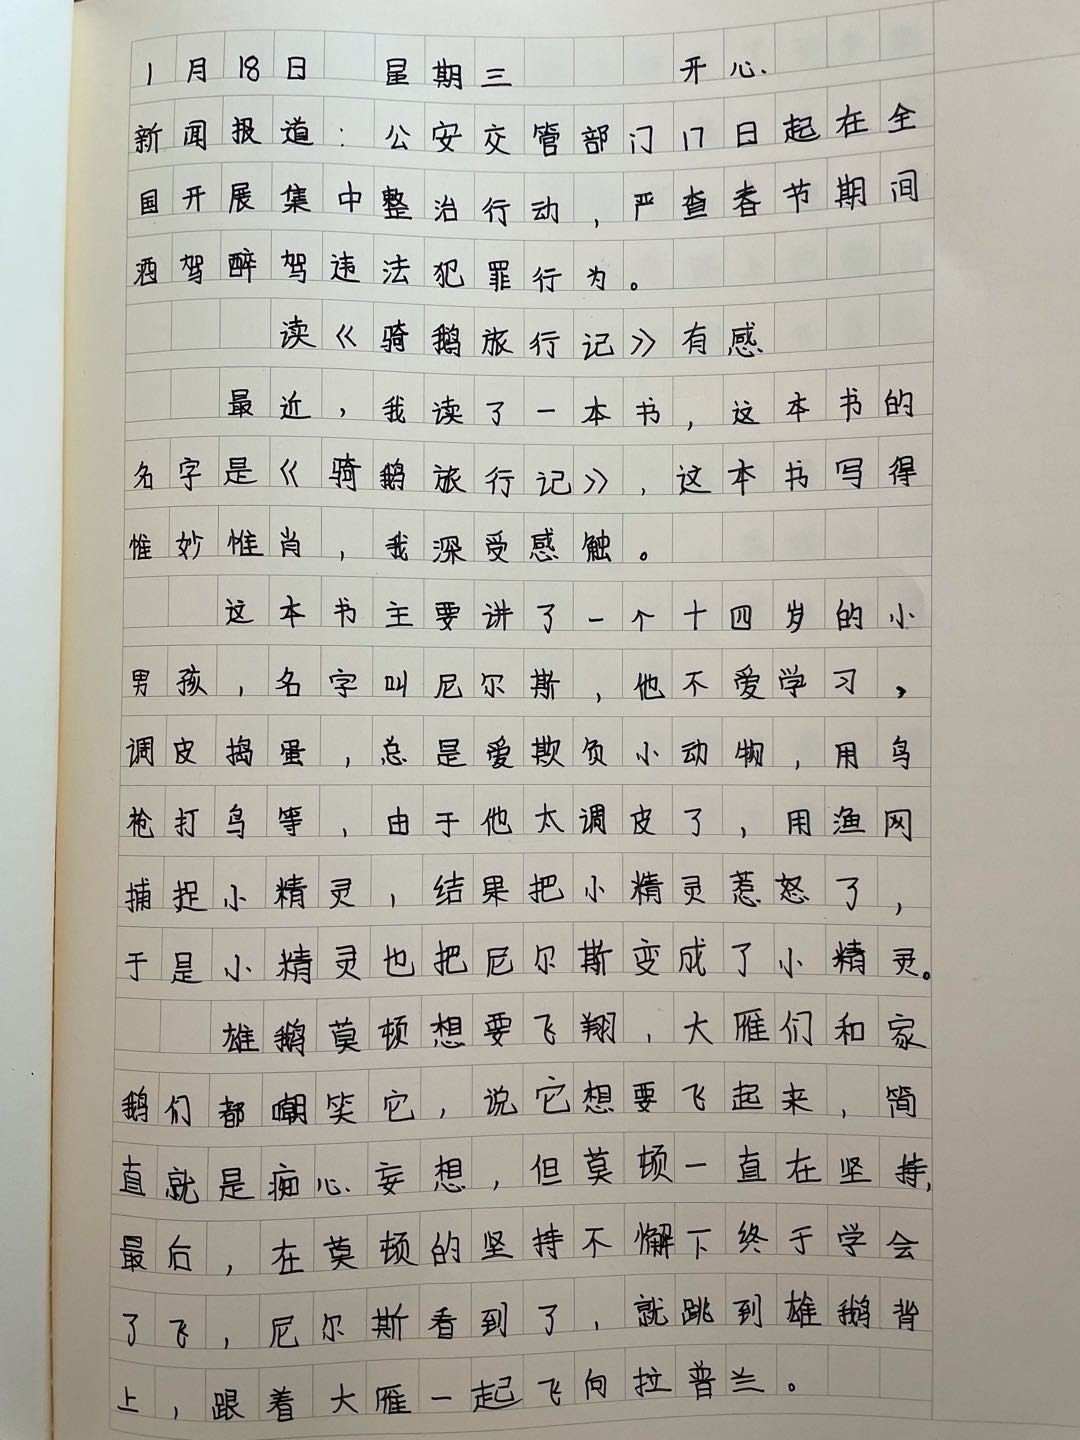 1月18日 星期三 开心
新闻报道：公安交管部门17日起在全
国开展集中整治行动，严查春节期间
酒驾醉驾违法犯罪行为。
读《骑鹅旅行记》有感
最近，我读了一本书，这本书的
名字是《骑鹅旅行记》，这本书写得
惟妙惟肖，我深受感触。
这本书主要讲了一个十四岁的小
男孩，名字叫尼尔斯，他不爱学习，
调皮捣蛋，总是爱欺负小动物，用鸟
枪打鸟等，由于他太调皮了，用渔网
捕捉小精灵，结果把小精灵惹怒了，
于是小精灵也把尼尔斯变成了小精灵。
雄鹅莫顿想要飞翔，大雁们和家
鹅们都嘲笑它，说它想要飞起来，简
直就是痴心妄想，但莫顿一直在坚持，
最后，在莫顿的坚持不懈下终于学会
了飞，尼尔斯看到了，就跳到雄鹅背
上，跟着大雁一起飞向拉普兰。